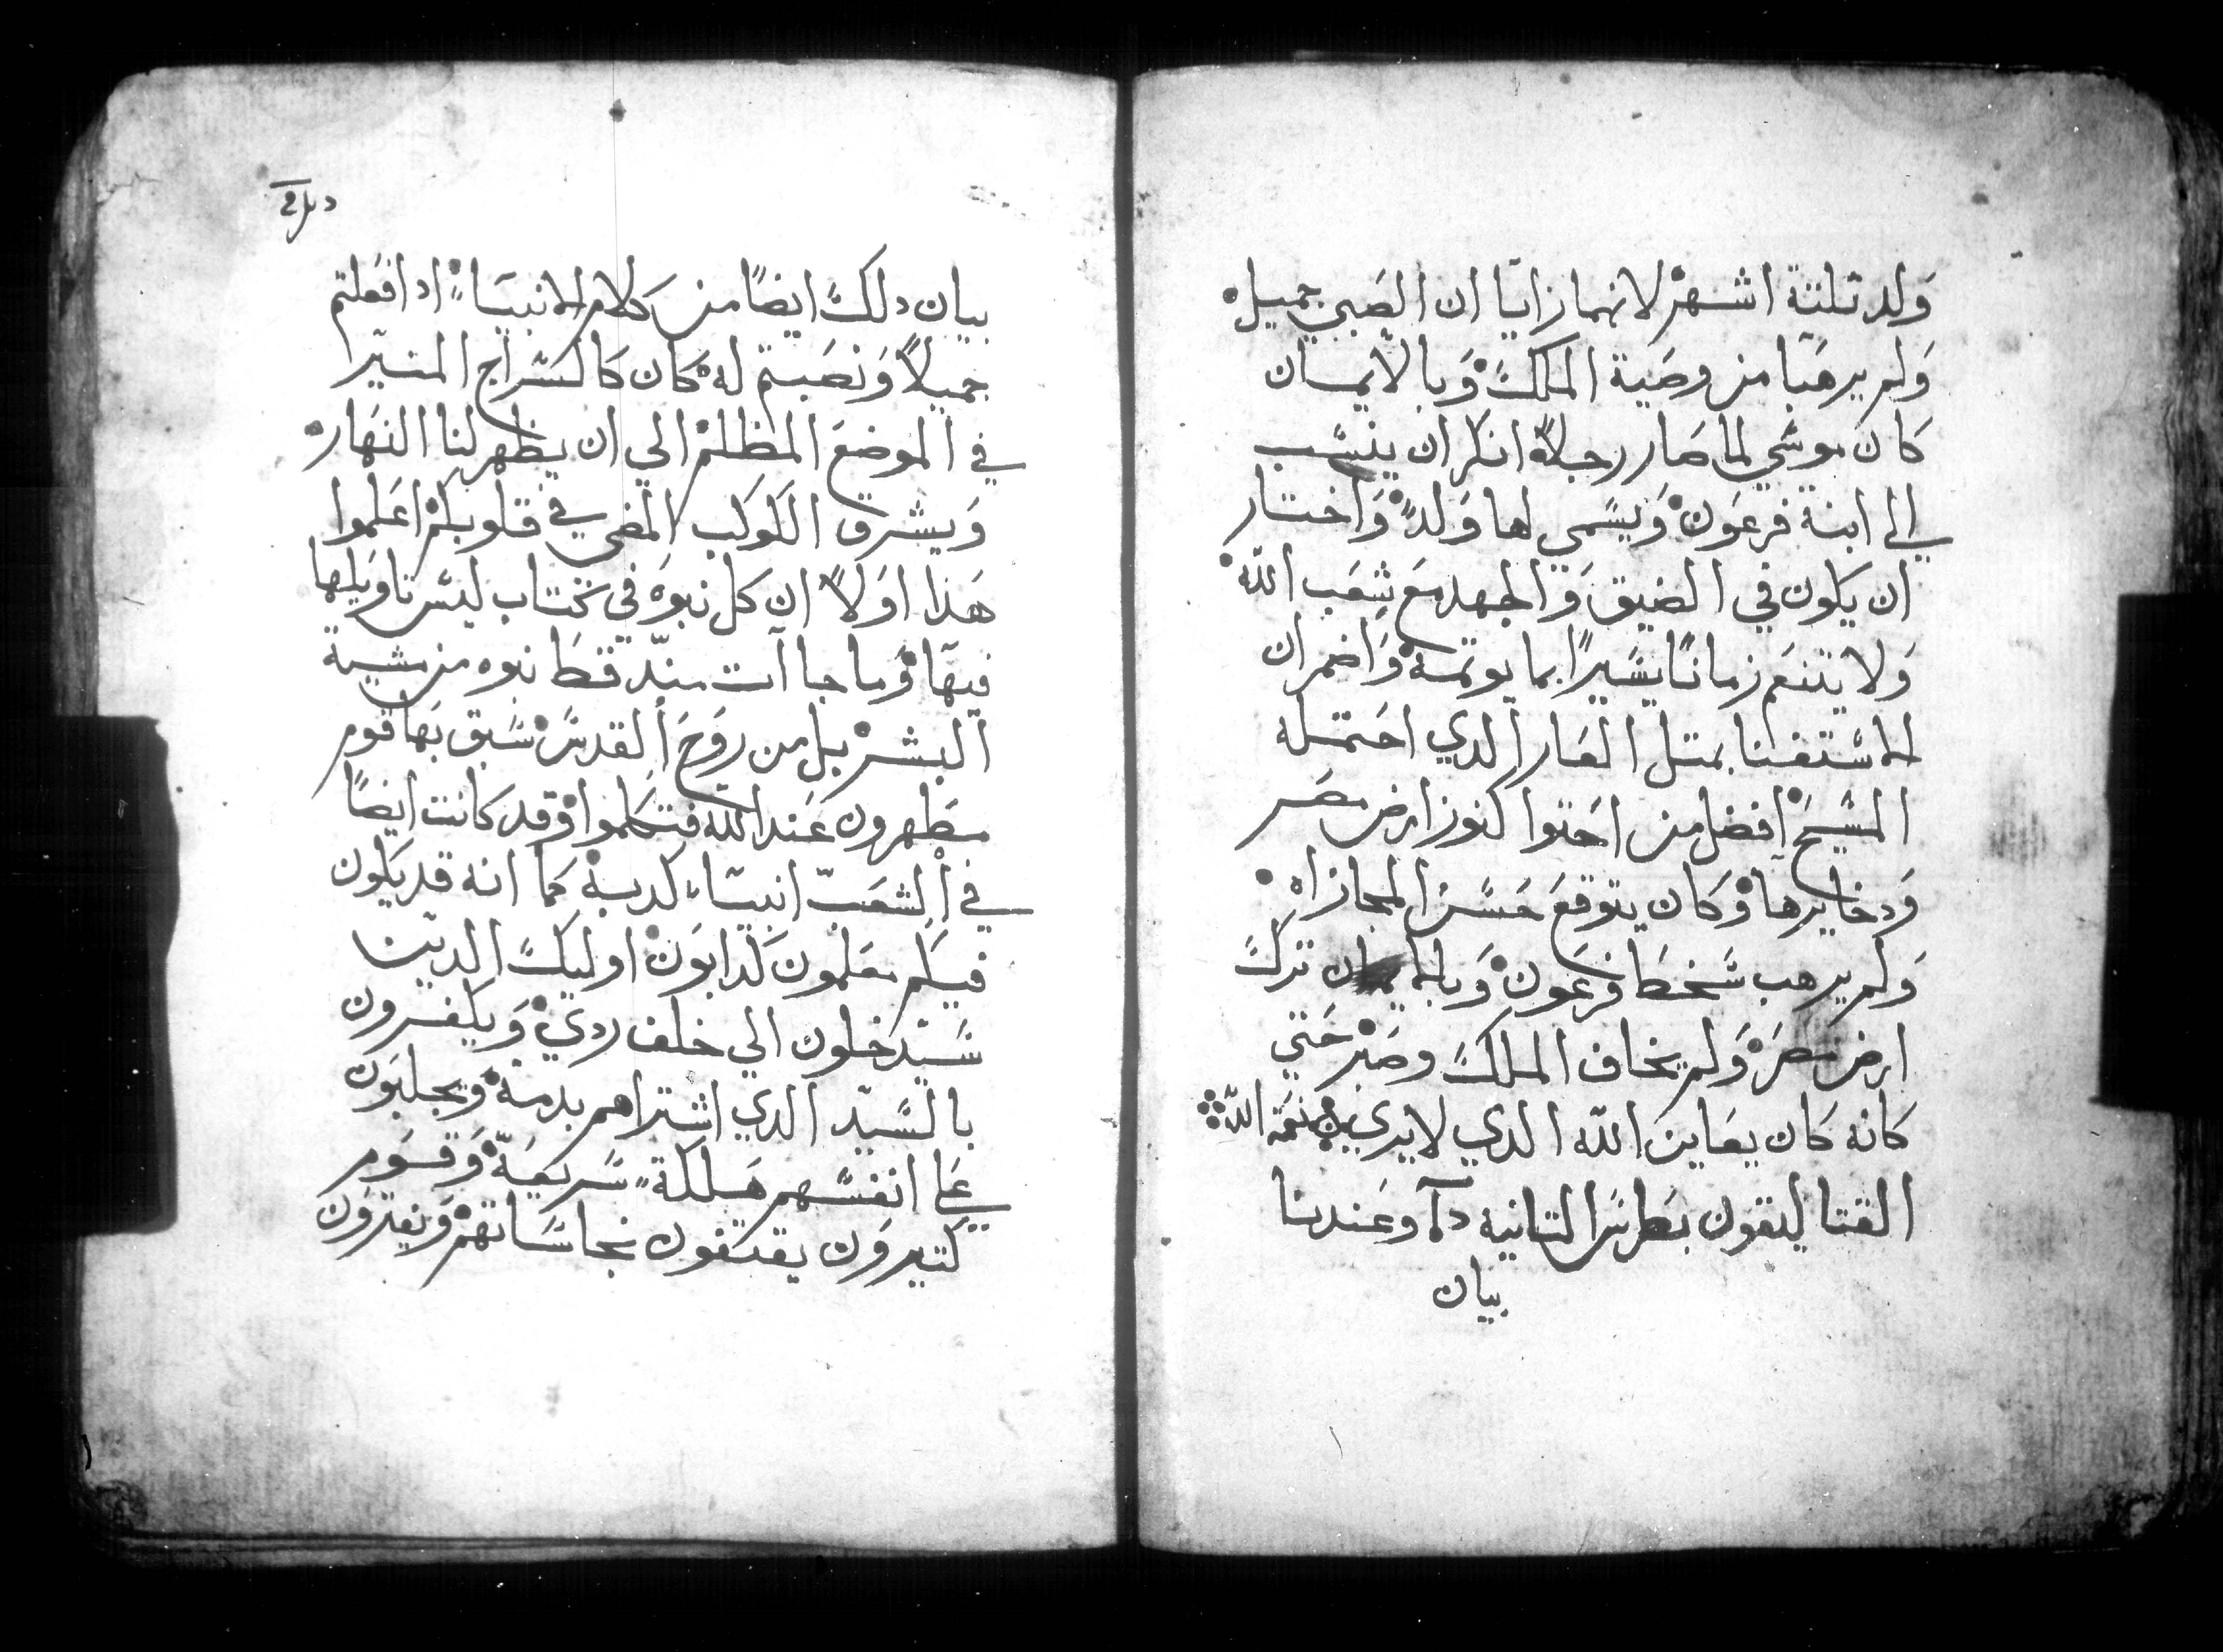 ولد تلتة اشهر لانهما زايا ان الصبي جميل
ولم يرهبا من وصية الملك وبالايمان
كان موسي لما صار رجلا انكر ان ينسب
الي ابنة فرعون ويسمي لها ولد واختار
ان يكون في الضيق والجهد مع شعب الله
ولا يتنعم زمانا يسيرا بما يوتمه واضمر ان
الاستغنا بمتل العار الدي احتمله
المسيح افضل من احتوا كنوز ارض مصر
ودخايرها وكان يتوقع حسن المجازاه
ولم يرهب سخط فرعون وبالايمان ترك
ارض مصر ولم يخاف الملك وصبر حتي
كانه كان يعاين الله الدي لا يري نعمة الله
القتاليقون بطرس التانيه وعندنا
بيان
بيان دلك ايضا من كلام الانبياء ادا فعلتم
جميلا ونصبتم له كان كالسراج المنير
في الموضع المظلم الي ان يظهر لنا النهار
ويشرق الكوكب المضي في قلوبكم اعلموا
هذا اولا ان كل نبوه في كتاب ليس تاويلها
فيها وما جاات منه قط نبوه من مشية
البشر بل من روح القدس سبق بها قوم
مطهرون عند الله فتكلموا وقد كانت ايضا
في الشعب انبياء كدبة كما انه قد يكون
فيكم معلمون كدابون اوليك الدين
سيدخلون الي خلف ردي ويكفرون
بالسيد الدي اشتراهم بدمه ويجلبون
علي انفسهم هلكة سريعة وقوم
كتيرون يقتفون نجاساتهم ويفترون